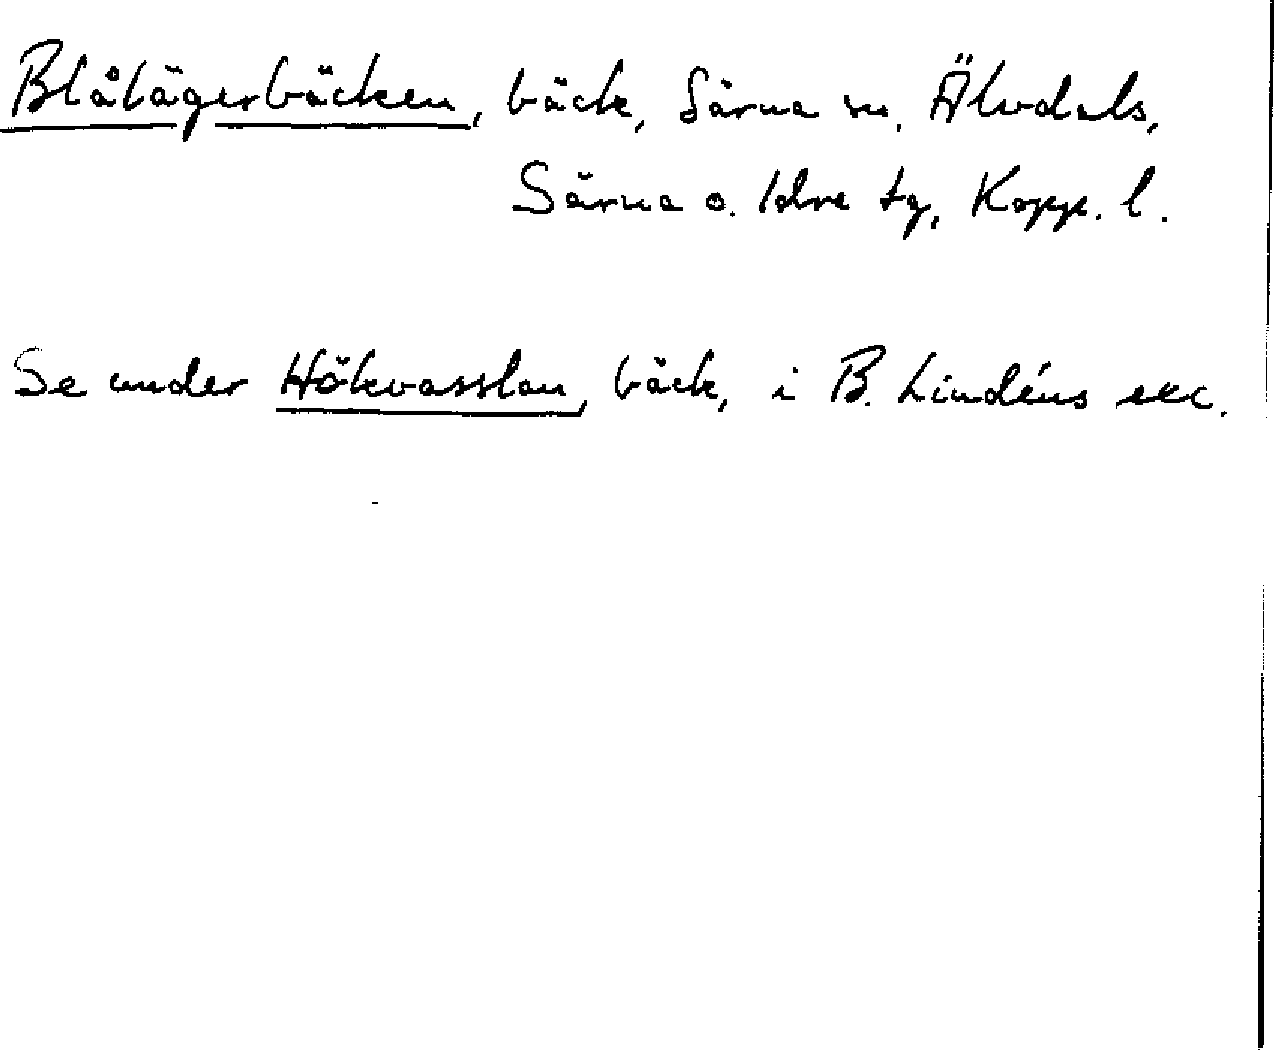 Blålägerbäcken, bäck, Särna sn, Älvdals,
Särna o. Idre tg, Kopp. l.
Se under Hökvasslan, bäck, i B. Lindéns exc.